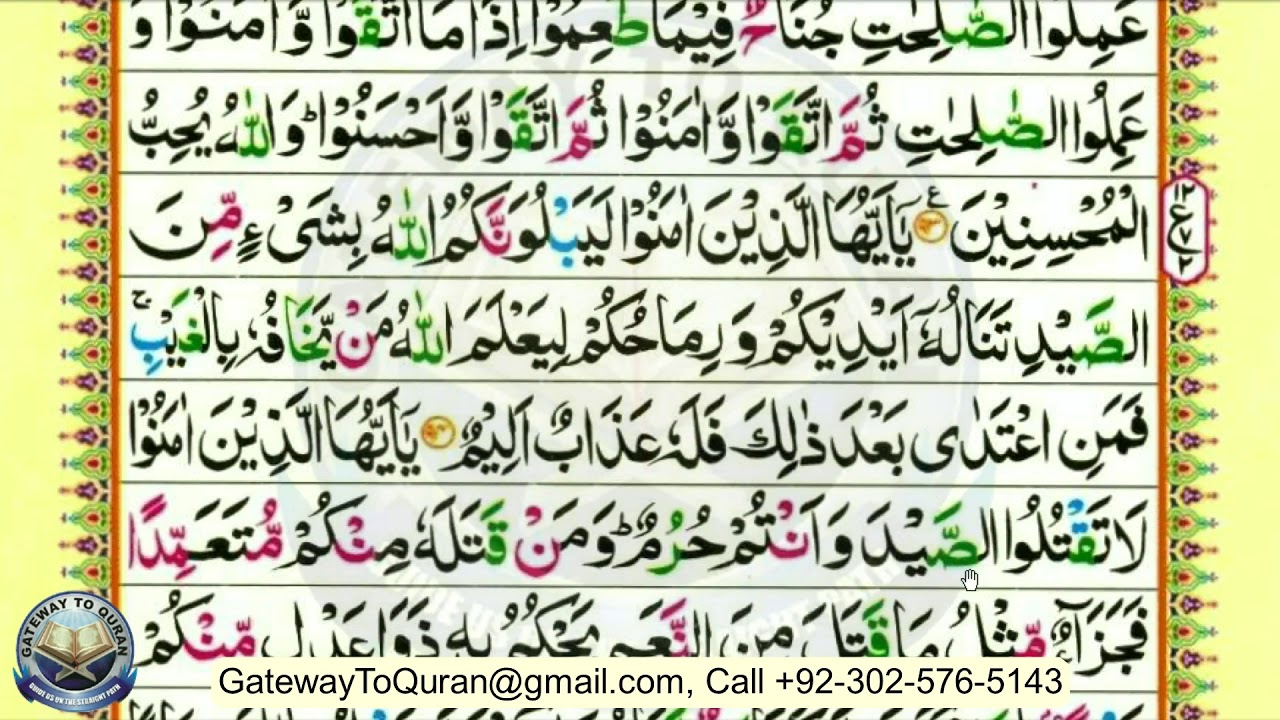 عَمِلُوا الصّٰلِحٰتِ جُنَاحٌ فِيْمَا طَعِمُوْۤا اِذَا مَا اتَّقَوْا وَّ اٰمَنُوْا وَ
عَمِلُوا الصّٰلِحٰتِ ثُمَّ اتَّقَوْا وَّ اٰمَنُوْا ثُمَّ اتَّقَوْا وَّ اَحْسَنُوْا ؕ وَ اللّٰهُ يُحِبُّ
الْمُحْسِنِيْنَ ۹۳ ع يٰۤاَيُّهَا الَّذِيْنَ اٰمَنُوْا لَيَبْلُوَنَّكُمُ اللّٰهُ بِشَیْءٍ مِّنَ
۱۲ ع ۷ ۲
الصَّيْدِ تَنَالُهٗۤ اَيْدِيْكُمْ وَ رِمَاحُكُمْ لِيَعْلَمَ اللّٰهُ مَنْ يَّخَافُهٗ بِالْغَيْبِ ۚ
فَمَنِ اعْتَدٰى بَعْدَ ذٰلِكَ فَلَهٗ عَذَابٌ اَلِيْمٌ ۹۴ يٰۤاَيُّهَا الَّذِيْنَ اٰمَنُوْا
لَا تَقْتُلُوا الصَّيْدَ وَ اَنْتُمْ حُرُمٌ ؕ وَ مَنْ قَتَلَهٗ مِنْكُمْ مُّتَعَمِّدًا
فَجَزَآءٌ مِّثْلُ مَا قَتَلَ مِنَ النَّعَمِ يَحْكُمُ بِهٖ ذَوَا عَدْلٍ مِّنْكُمْ
GATEWAY TO QURAN
GUIDE US ON THE STRAIGHT PATH
GatewayToQuran@gmail.com, Call +92-302-576-5143